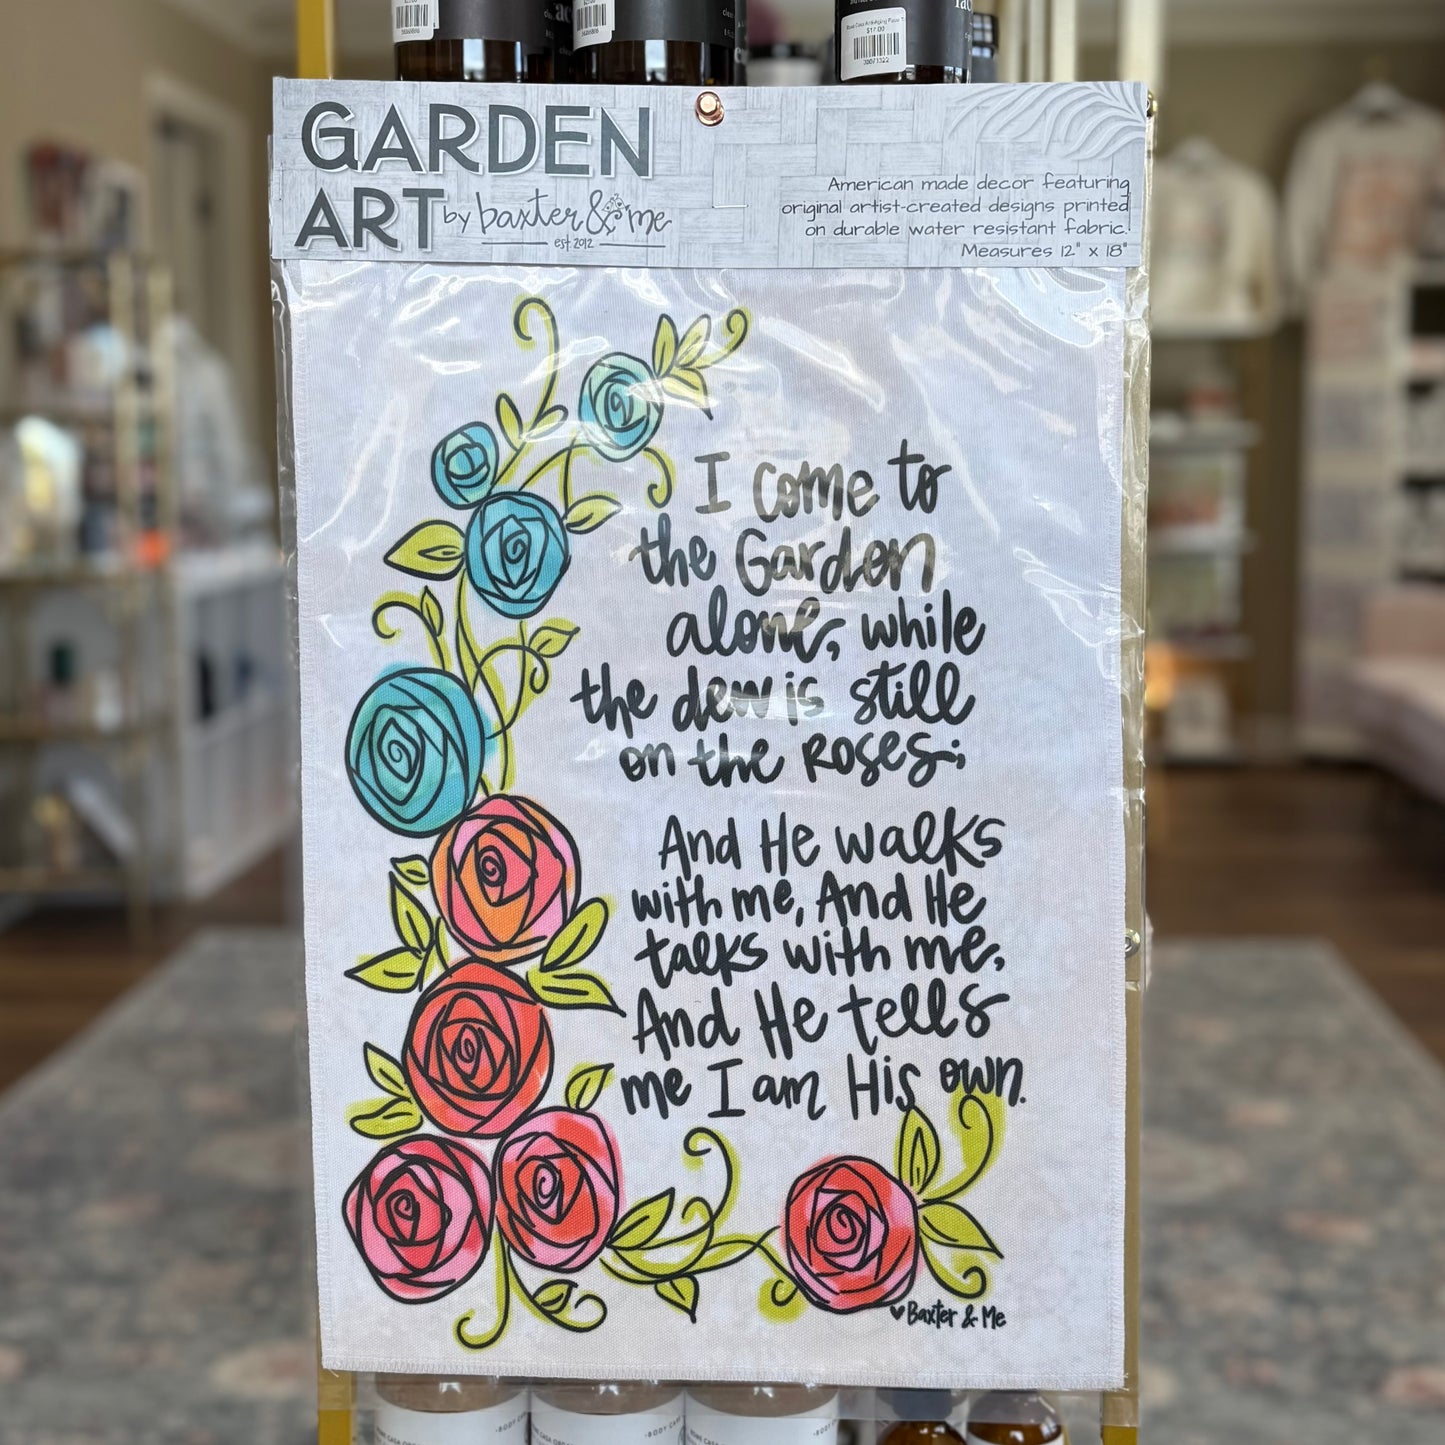 $17.00
30073322
GARDEN
ART by baxter & me
est. 2012
American made decor featuring
original artist-created designs printed
on durable water resistant fabric.
Measures 12" x 18"
I come to
the Garden
alone, while
the dew is still
on the Roses;
And He walks
with me, And He
talks with me,
And He tells
me I am His own.
Baxter & Me